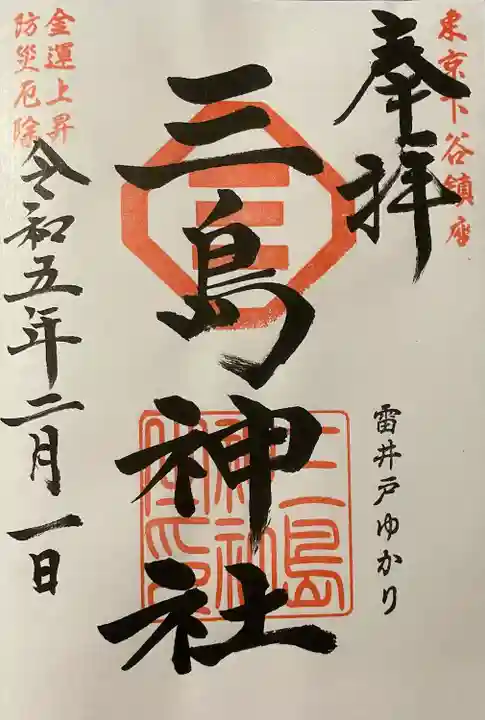 東京下谷鎮座
奉拝
雷井戸ゆかり
三島神社
三島
神社
令和五年二月一日
金運上昇
防災厄除